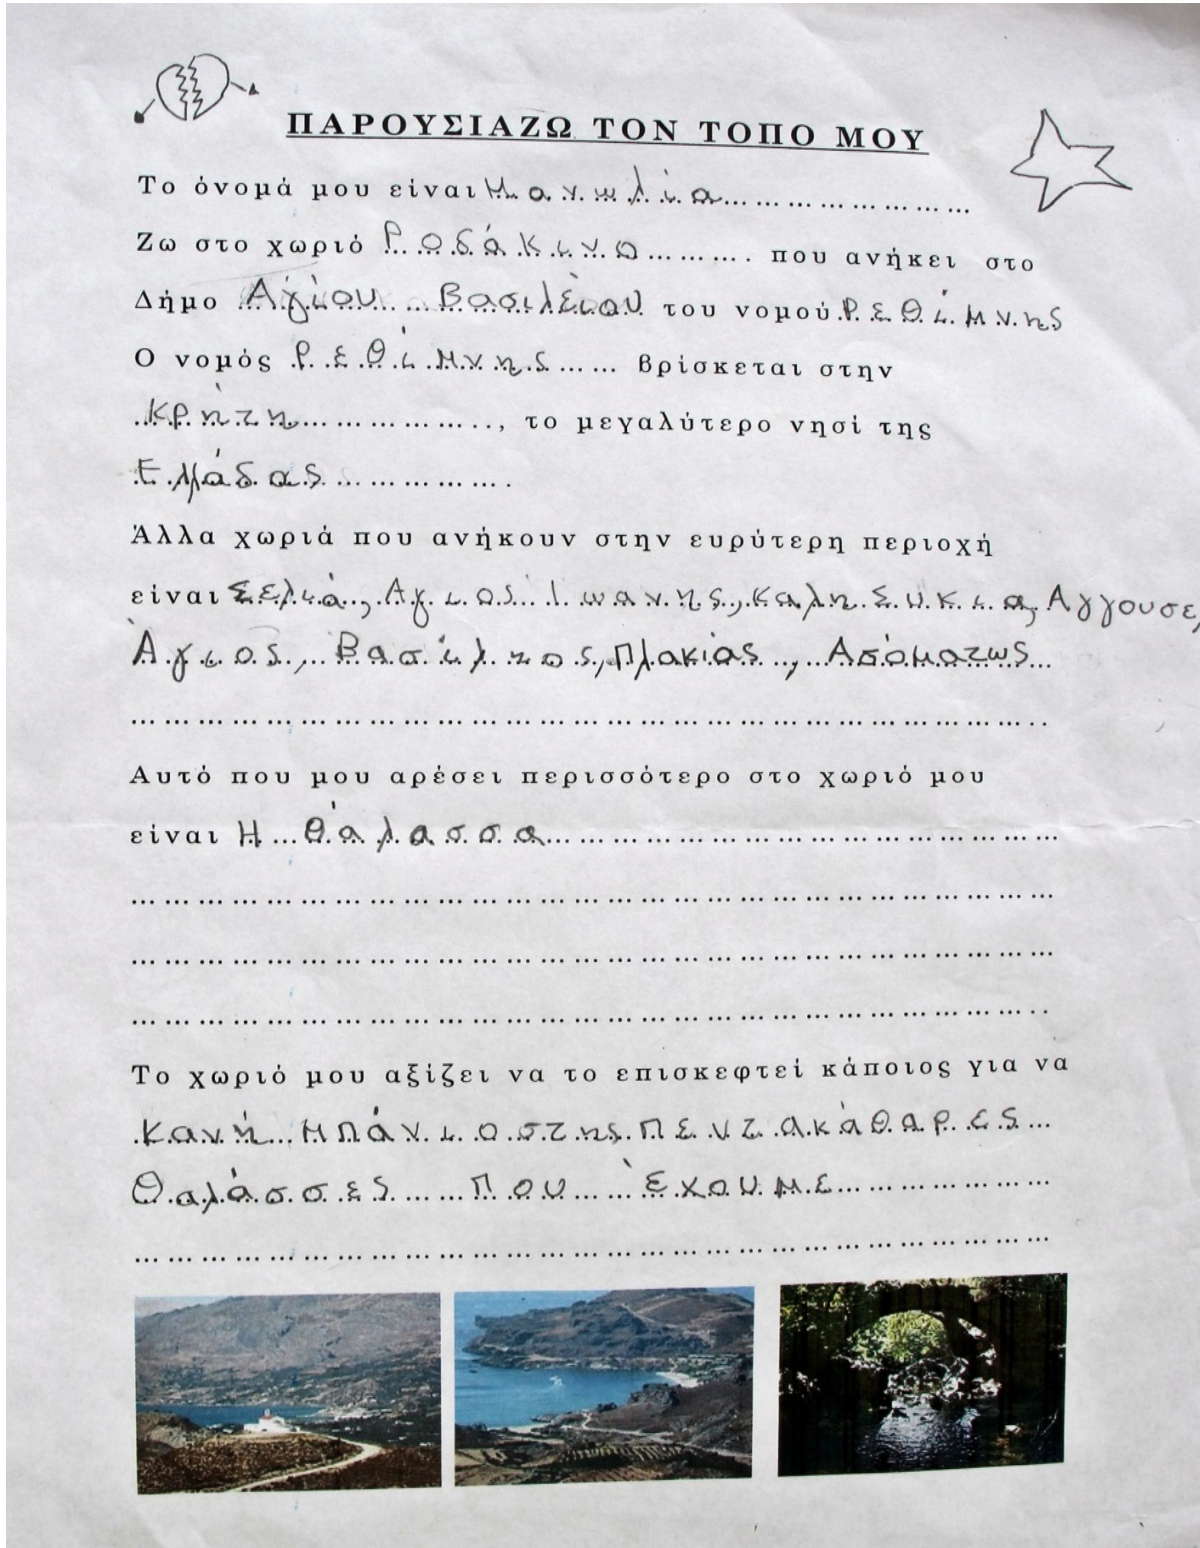 ΠΑΡΟΥΣΙΑΖΩ ΤΟΝ ΤΟΠΟ ΜΟΥ
Το όνομά μου είναι Μανωλία..................
Ζω στο χωριό Ροδάκινο.......... που ανήκει στο
Δήμο Αγίου Βασιλείου του νομού Ρεθίμνης
Ο νομός Ρεθίμνης...... βρίσκεται στην
Κρήτη................., το μεγαλύτερο νησί της
Ελλάδας................
Άλλα χωριά που ανήκουν στην ευρύτερη περιοχή
είναι Σελιά, Αγιος Ιωανης, Καλη Συκια, Αγγουσε,
Άγιος, Βασίληος, Πλακιάς, Ασόματως...
Αυτό που μου αρέσει περισσότερο στο χωριό μου
είναι Η θάλασσα..........................................
Το χωριό μου αξίζει να το επισκεφτεί κάποιος για να
Κανή Μπάνιο στης Πεντακάθαρες
Θαλάσσες Που Έχουμε..................